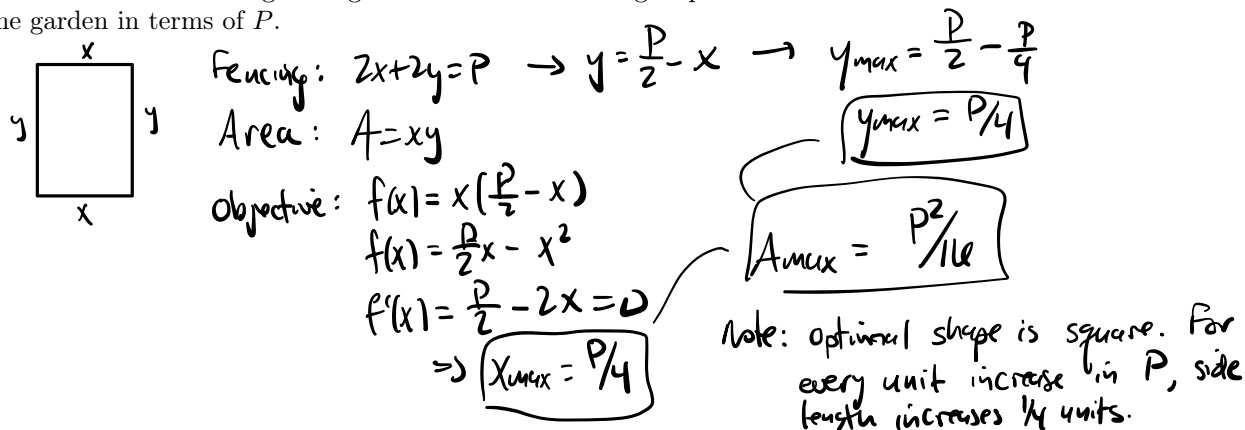 he garden in terms of P.
x
y
y
x
Fencing: 2x+2y=P → y = P/2 - x → y max = P/2 - P/4
y max = P/4
Area: A=xy
Objective: f(x) = x(P/2 - x)
f(x) = P/2 x - x²
f'(x) = P/2 - 2x = 0
⇒ x max = P/4
A max = P²/16
Note: optimal shape is square. For
every unit increase in P, side
length increases 1/4 units.